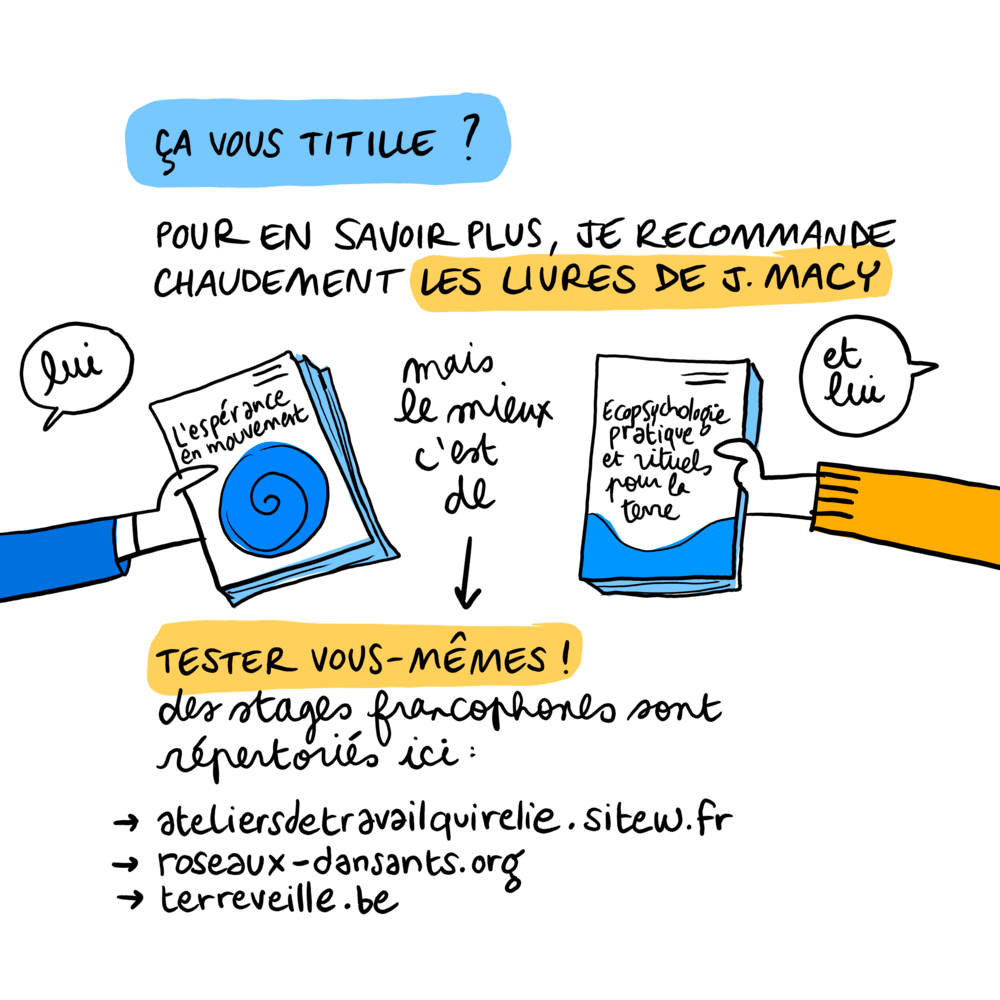 ÇA VOUS TITILLE ?
POUR EN SAVOIR PLUS, JE RECOMMANDE
CHAUDEMENT LES LIVRES DE J. MACY
lui
L'espérance
en mouvement
mais
le mieux
c'est
de
Ecopsychologie
pratique
et rituels
pour la
terre
et
lui
TESTER VOUS-MÊMES !
des stages francophones sont
répertoriés ici :
→ ateliersdetravailquirelie.sitew.fr
→ roseaux-dansants.org
→ terreveille.be